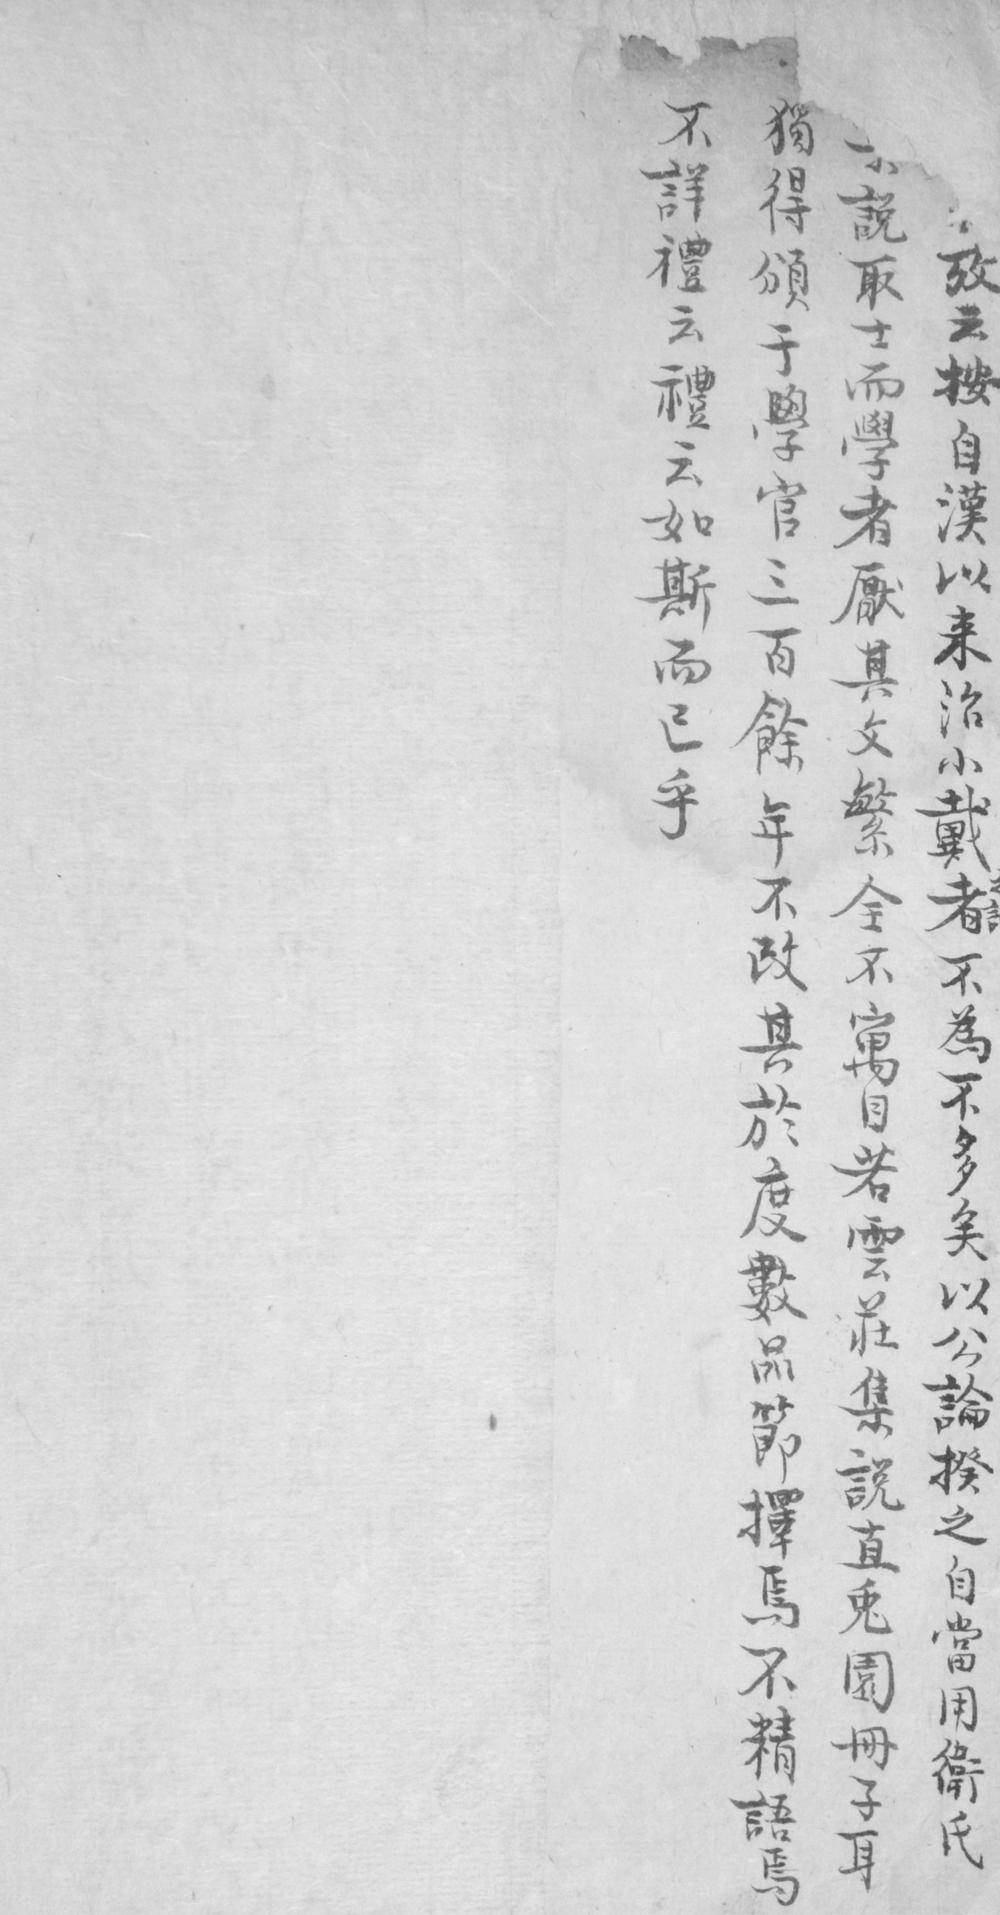 攷云按自漢以来治小戴者不為不多矣以公論揆之自當用衛氏
之記
說取士而學者厭其文繁全不寓目若雲莊集說直兎園冊子耳
獨得頒于學官三百餘年不改其於度數品節擇焉不精語焉
不詳禮云禮云如斯而已乎